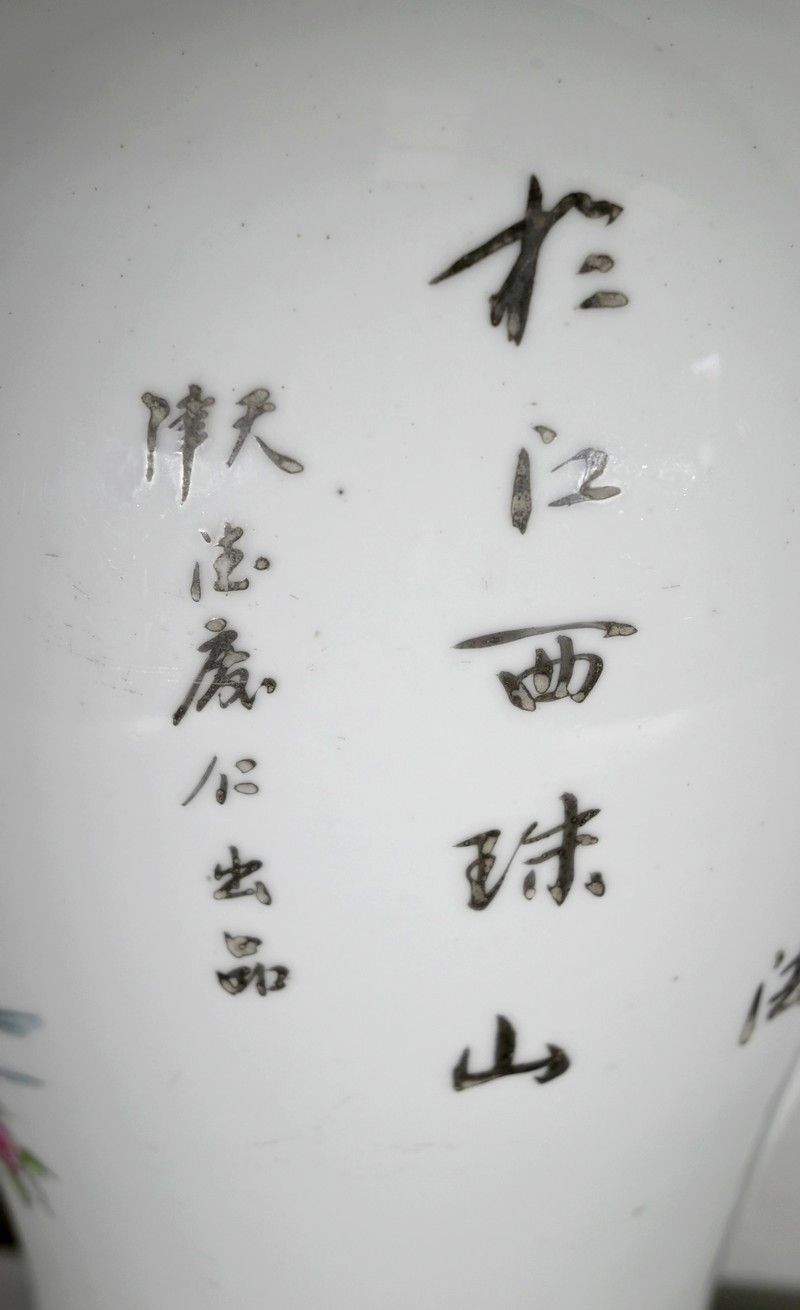 於江西珠山
天津德慶仁出品